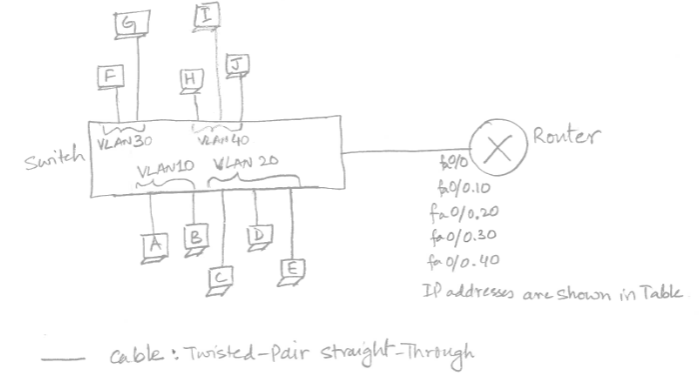 G
I
F
H
J
VLAN30
VLAN40
Switch
VLAN10
VLAN 20
Router
fa0/0
fa0/0.10
fa0/0.20
fa0/0.30
fa0/0.40
A
B
C
D
E
IP addresses are shown in Table
Cable : Twisted-Pair Straight-Through